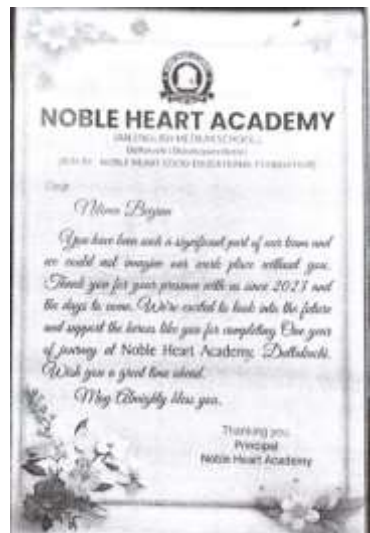 NOBLE HEART ACADEMY
(AN ENGLISH MEDIUM SCHOOL)
Dear
Begum
You have been such a significant part of our team and
we could not imagine our work place without you.
Thank you for your presence with us since 2023 and
the days to come. We're excited to look into the future
and support the heroes like you for completing One year
of journey at Noble Heart Academy, Duttakuchi.
Wish you a great time ahead.
May Almighty bless you.
Thanking you
Principal
Noble Heart Academy